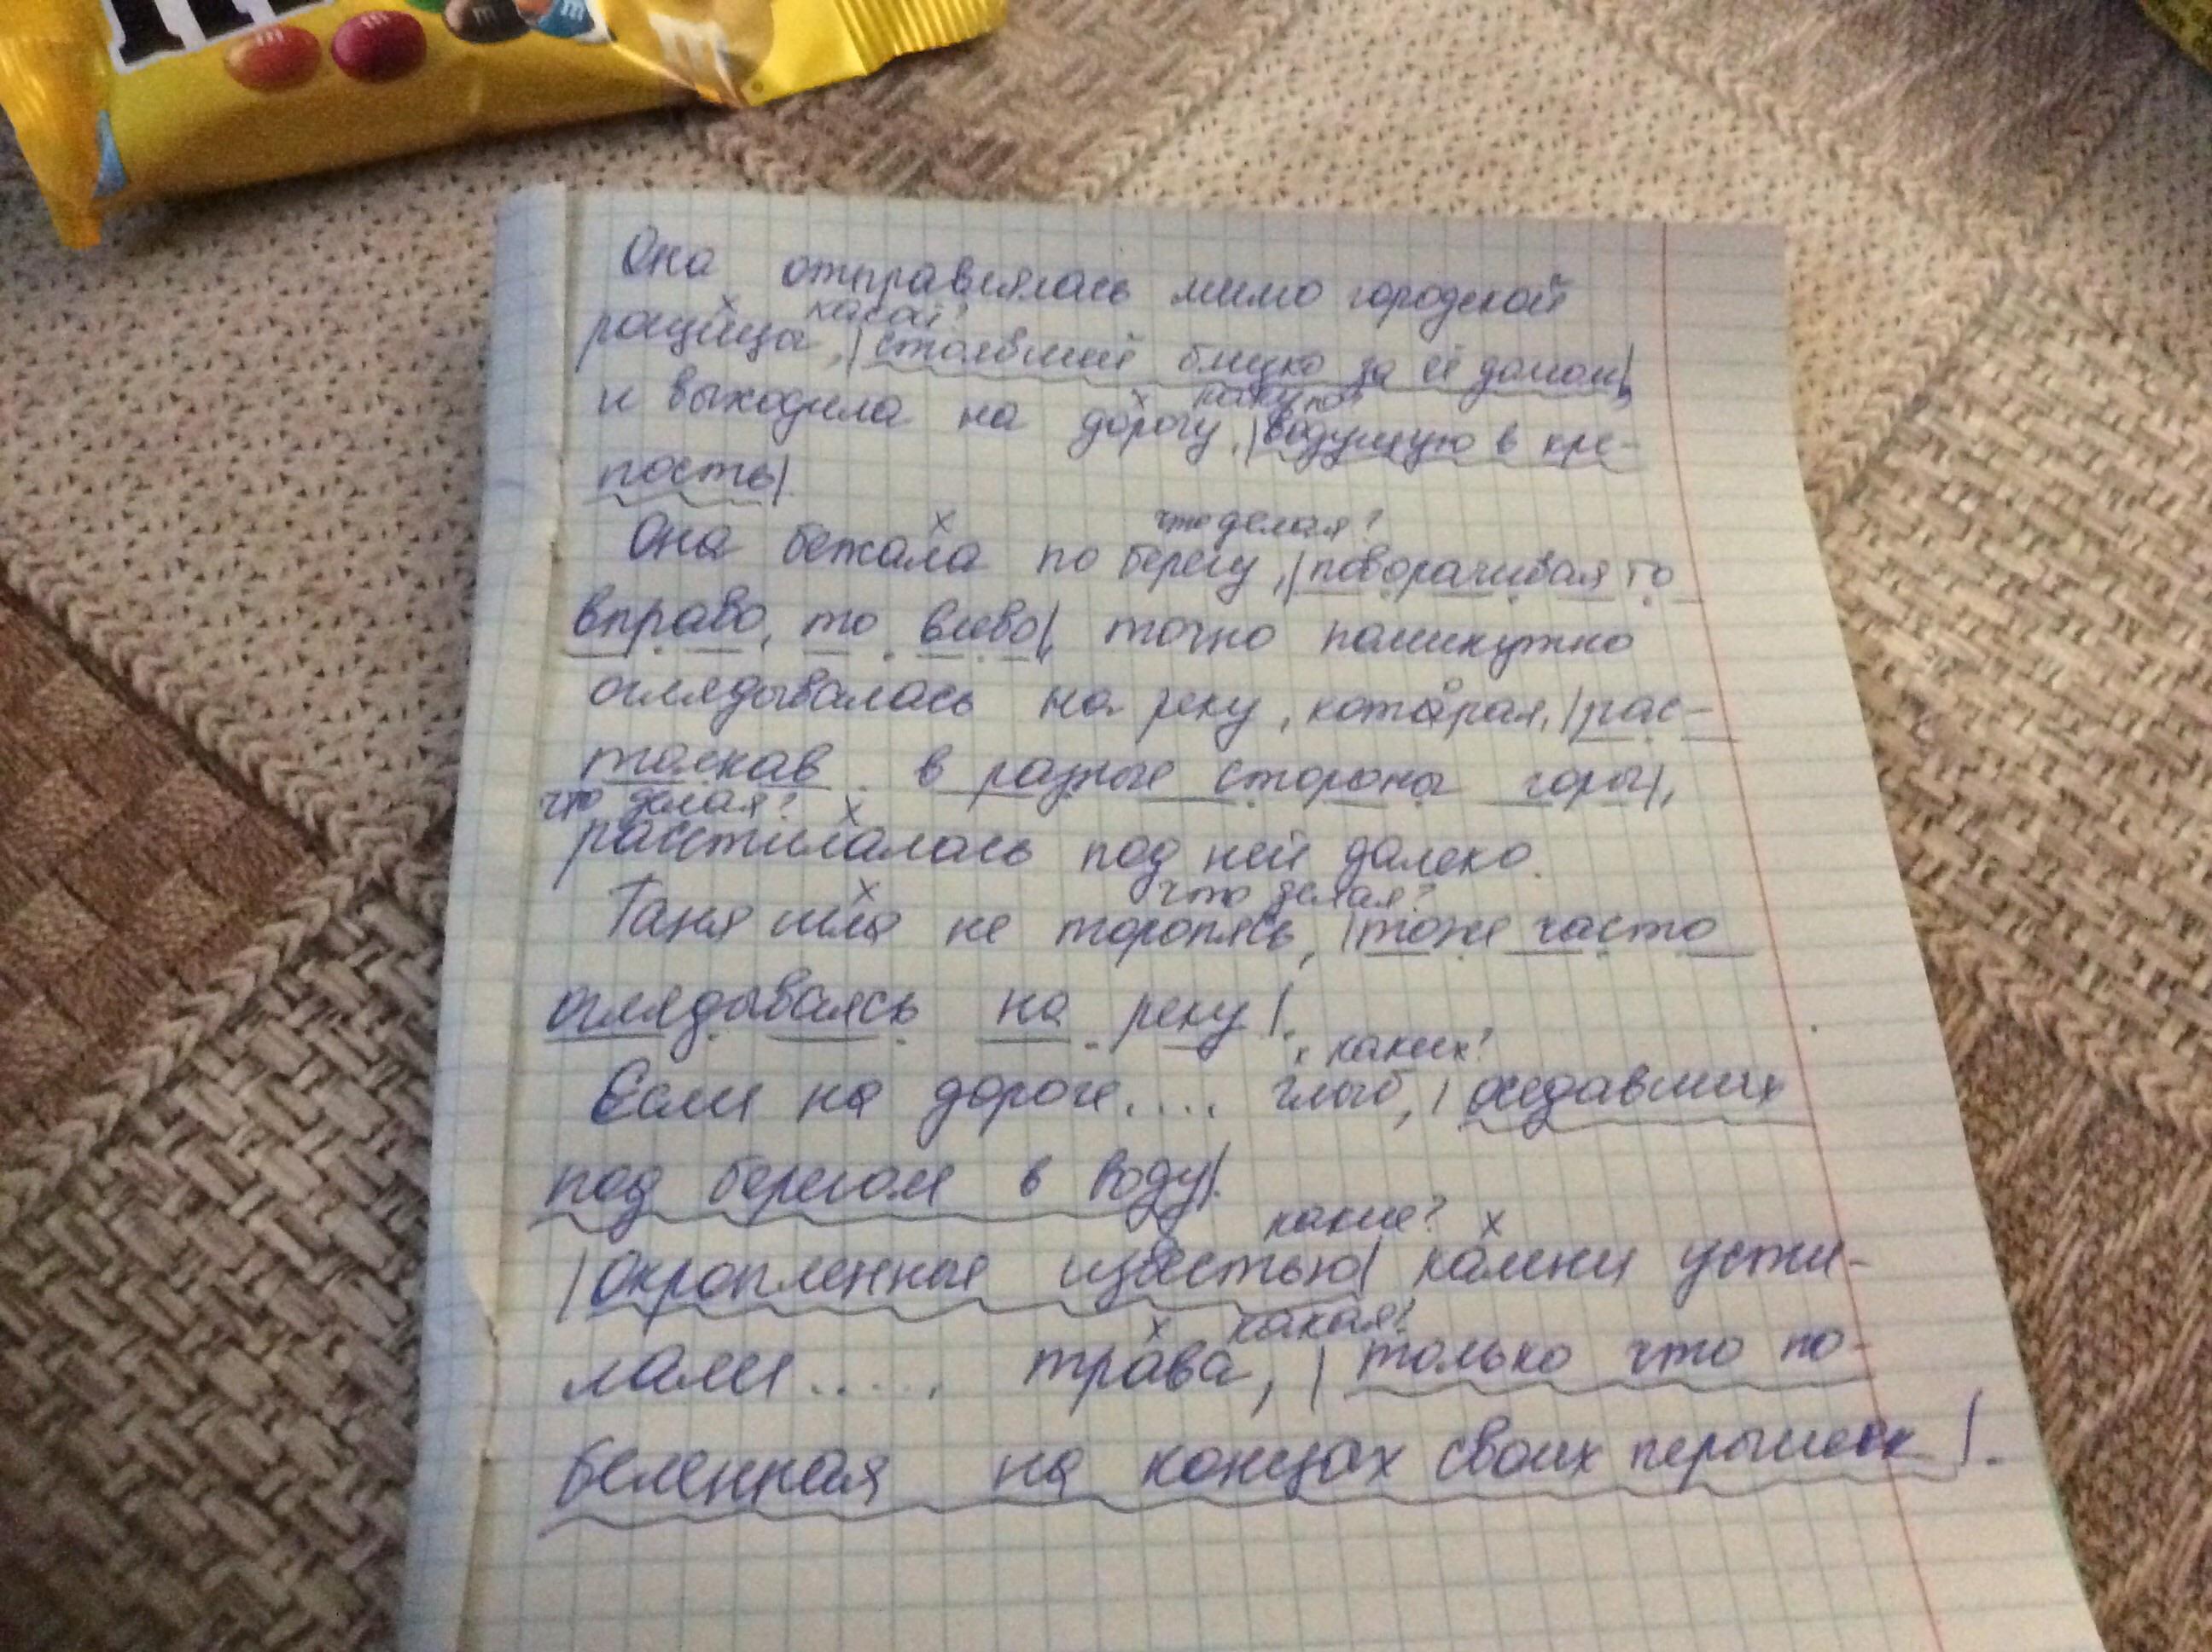 Она отправлялась мимо городской
какой?
рощицы, |стоявшей близко за её домом|,
какую?
и выходила на дорогу, |ведущую в кре-
пость|.
что делая?
Она бежала по берегу, |поворачивая то
вправо, то влево|, точно поминутно
оглядывалась на реку, которая, |рас-
толкав в разные стороны горы|,
что делая?
расстилалась под ней далеко.
что делая?
Таня шла не торопясь, |тоже часто
оглядываясь на реку|.
каких?
Если на дороге.... глыб, | оседавших
под берегом в воду|.
какие?
|Окропленные известью| камни усти-
какая?
лали ..... трава, | только что по-
беленная на концах своих перышек|.
m m m